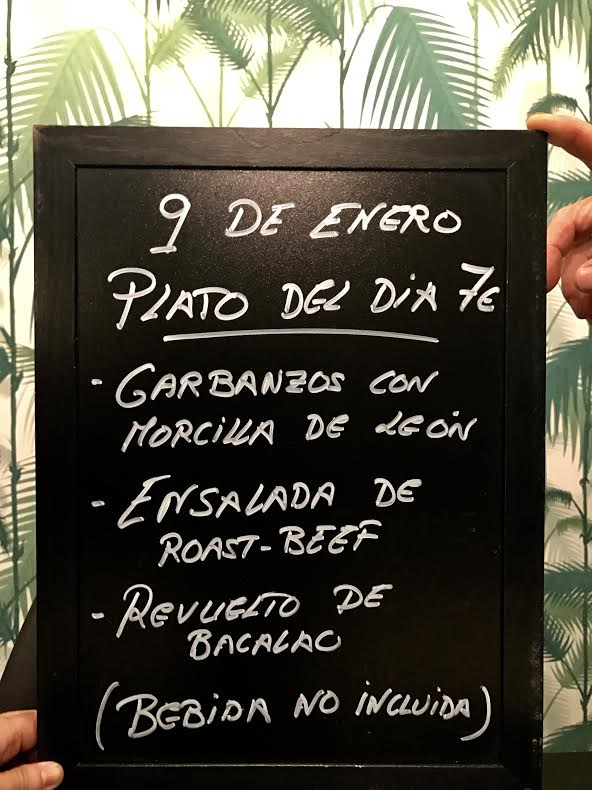 9 DE ENERO
PLATO DEL DiA 7€
- GARBANZOS CON
MORCILLA DE LEÓN
- ENSALADA DE
ROAST-BEEF
- REVUELTO DE
BACALAO
(BEBiDA NO iNCLUiDA)